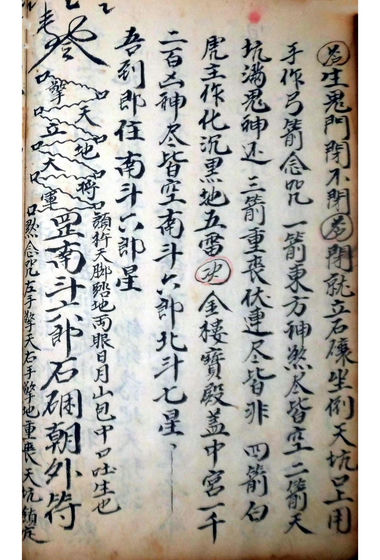 為生鬼門閉不閉為閉就立石磉坐倒天坑口上用
手作弓箭念咒一箭東方神煞尽皆空二箭天
坑滿鬼神还三箭重喪伏連尽皆非四箭白
虎主作化沉黑地五雷 金樓寶殿盖中宮一千
二百凶神尽皆空南斗六郎北斗七星
吾到郎住南斗六郎星
頭頂天脚踏地両眼日月山包中口吐生也
罡南斗六郎石磉朝外符
煞念咒左手擎天右手擎地重喪天坑
擎天地將
立大軍